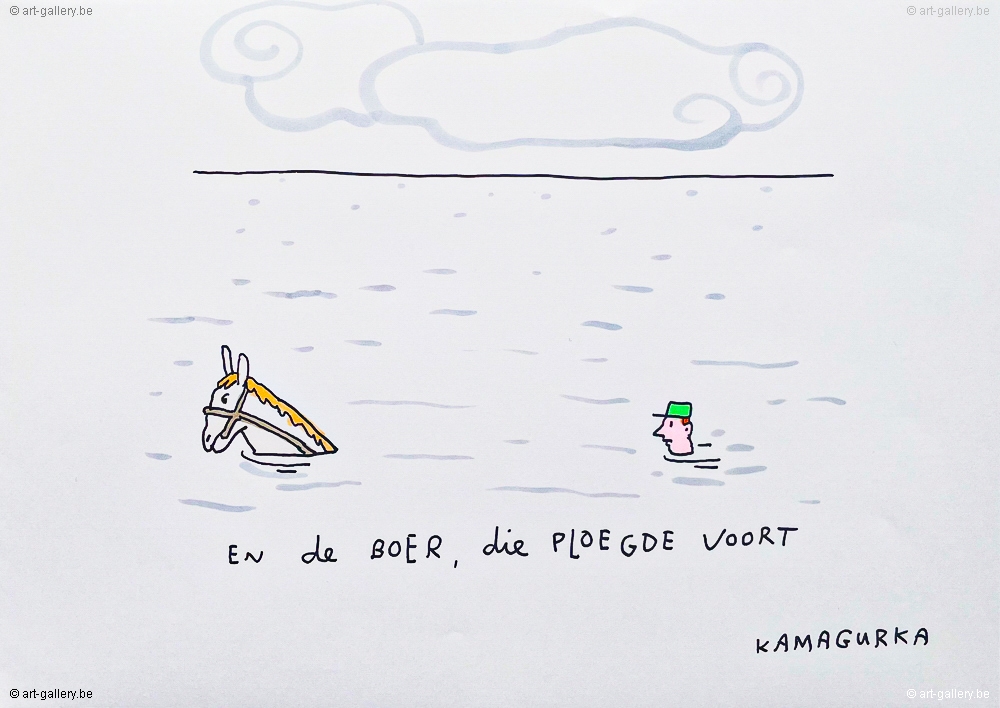 © art-gallery.be
© art-gallery.be
EN de BOER, die PLOEGDE VOORT
KAMAGURKA
© art-gallery.be
© art-gallery.be